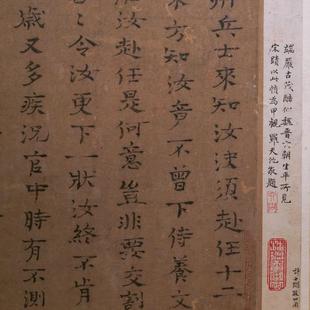 端嚴古茂酷似魏晉六朝生平所見
宋蹟以此幀為甲觀 羅天池敬題
州兵士來知汝決須赴任十二
來方知汝竟不曾下侍養文
汝赴任是何意豈非要交割
令汝更下一狀汝終不肯
歲又多疾況官中時有不測